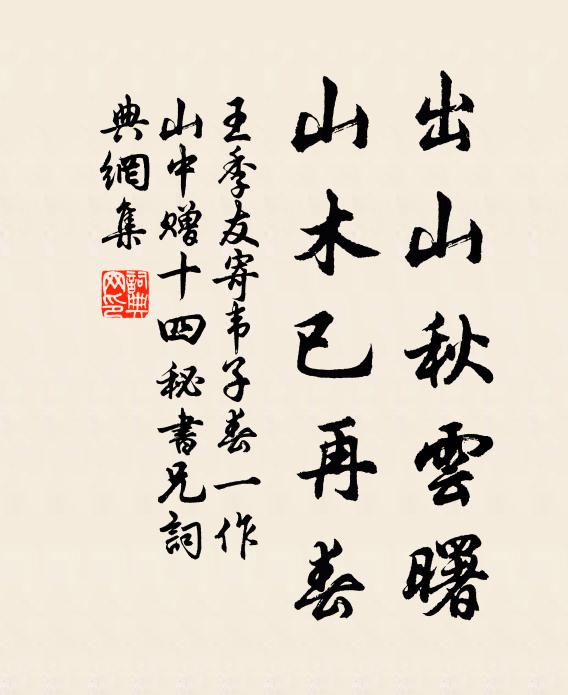 出山秋雲曙
山木已再春
王季友寄韦子春一作
山中赠十四秘書兄詞
典網集
詞典網印